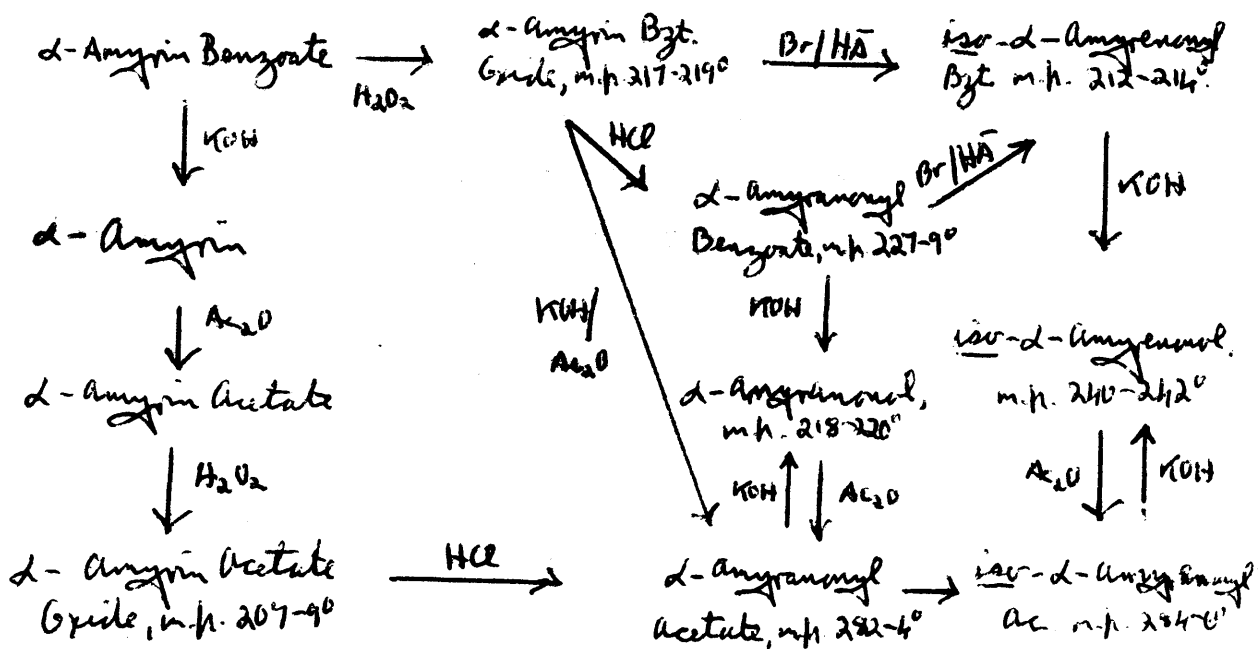 α-Amyrin Benzoate
H₂O₂
α-Amyrin Bzt.
Oxide, m.p. 217-219°
Br/HĀ
iso-α-Amyrenonyl
Bzt m.p. 212-214°.
KOH
HCl
α-Amyranonyl
Benzoate, m.p. 227-9°
Br/HĀ
KOH
α-Amyrin
Ac₂O
KOH/
Ac₂O
KOH
iso-α-Amyrenonol.
m.p. 240-242°
α-Amyrin Acetate
α-Amyranonol,
m.p. 218-220°
H₂O₂
KOH
Ac₂O
Ac₂O
KOH
α-Amyrin Acetate
Oxide, m.p. 207-9°
HCl
α-Amyranonyl
Acetate, m.p. 282-4°
iso-α-Amyrenonyl
Ac m.p.